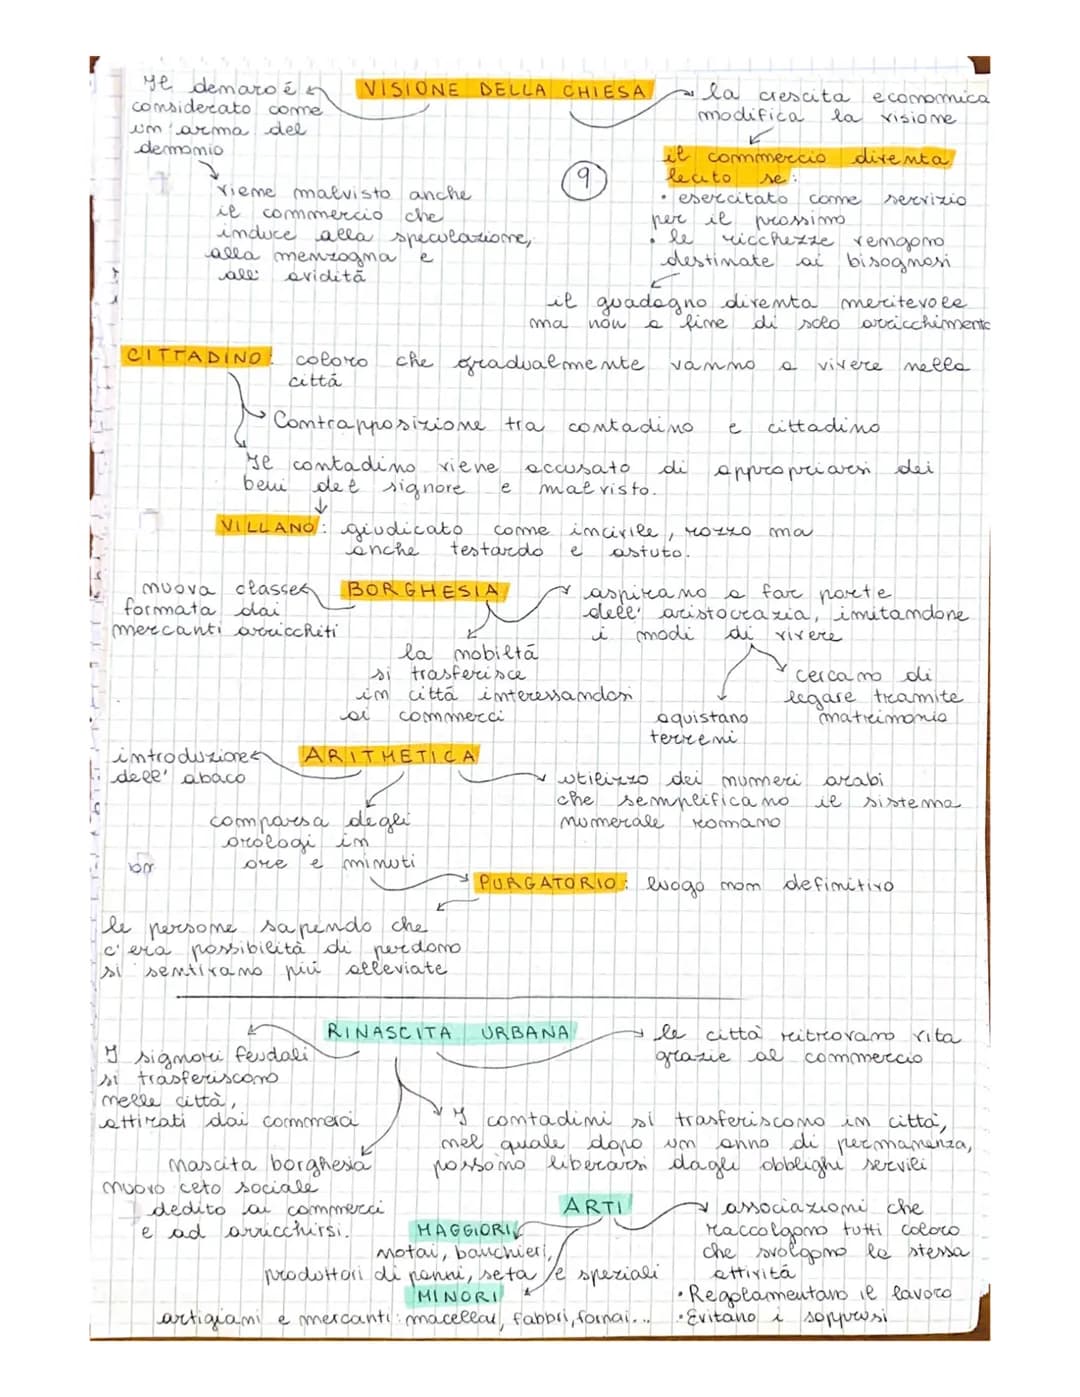 VISIONE DELLA CHIESA
Il denaro é
considerato come
un'arma del
demonio
viene malvisto anche
il commercio che
induce alla speculazione,
alla menzogna e
all' avidità
9
la crescita economica
modifica la visione
il commercio diventa
lecito se:
• esercitato come servizio
per il prossimo
• le ricchezze vengono
destinate ai bisognosi
il guadagno diventa meritevole
ma non a fine di solo arricchimento
CITTADINO: coloro che gradualmente vanno a vivere nella
città
Contrapposizione tra contadino e cittadino
Il contadino viene accusato di appropriarsi dei
beni del signore e malvisto.
VILLANO: giudicato come incivile, rozzo ma
anche testardo e astuto.
BORGHESIA
nuova classe
formata dai
mercanti arricchiti
la nobiltà
si trasferisce
in città interessandosi
ai commerci
aspirano a far parte
dell' aristocrazia, imitandone
i modi di vivere
aquistano
terreni
cercano di
legare tramite
matrimonio
ARITMETICA
introduzione
dell' abaco
comparsa degli
orologi in
ore e minuti
utilizzo dei numeri arabi
che semplificano il sistema
numerale romano
PURGATORIO: luogo non definitivo
le persone sapendo che
c'era possibilità di perdono
si sentivano più alleviate
RINASCITA URBANA
I signori feudali
si trasferiscono
nelle città,
attirati dai commerci
le città ritrovano vita
grazie al commercio
I contadini si trasferiscono in città,
nel quale dopo un anno di permanenza,
possono liberarsi dagli obblighi servili
nascita borghesia
nuovo ceto sociale
dedito ai commerci
e ad arricchirsi.
ARTI
associazioni che
raccolgono tutti coloro
che svolgono la stessa
attività
• Regolamentano il lavoro
• Evitano i soprusi
MAGGIORI
notai, banchieri,
produttori di panni, seta e speziali
MINORI
artigiani e mercanti: macellai, fabbri, fornai...